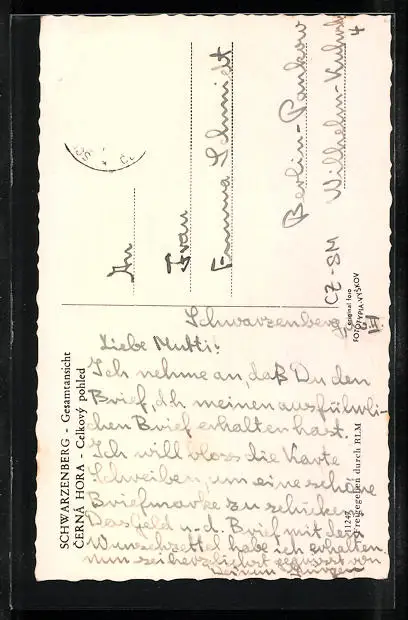 SCHWARZENBERG - Gesamtansicht
ČERNÁ HORA - Celkový pohled
Schwarzenberg
Liebe Mutti!
Ich nehme an, daß Du den
Brief, d.h. meinen ausführli-
chen Brief erhalten hast.
Ich will bloss die Karte
schreiben, um eine schöne
Briefmarke zu schicken.
Das Geld u. d. Brief mit dem
Wunschzettel habe ich erhalten.
Nun sei herzlichst gegrüsst von
Deinem Jürgen
An
Frau
Emma Schmidt
Berlin-Pankow
Wilhelm-Kuhr
4
CZ-SM
Original foto
FOTOTYPIA-VYŠKOV
Freigegeben durch RLM